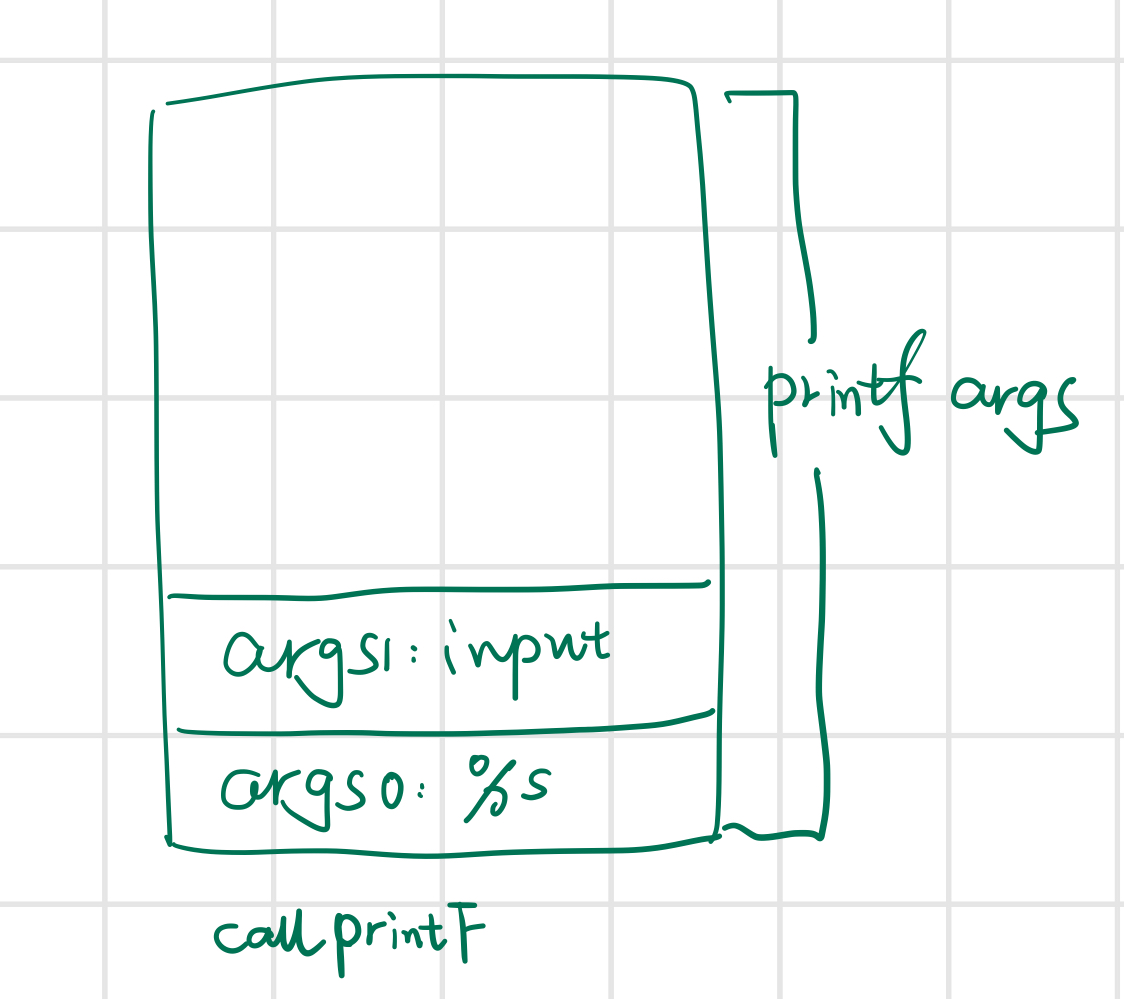 printf args
args1: input
args0: %s
call printf